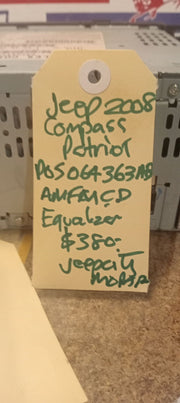 Jeep 2008
Compass
Patriot
P05064363AB
AM/FM CD
Equalizer
$380.
Jeepcity